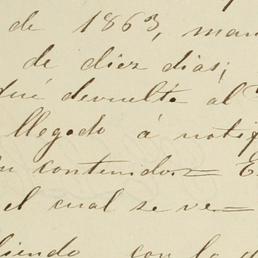 de 1863, man
de diez dias;
devuelto al
llegado á notif
su contenido= E
el cual se ve=
con la